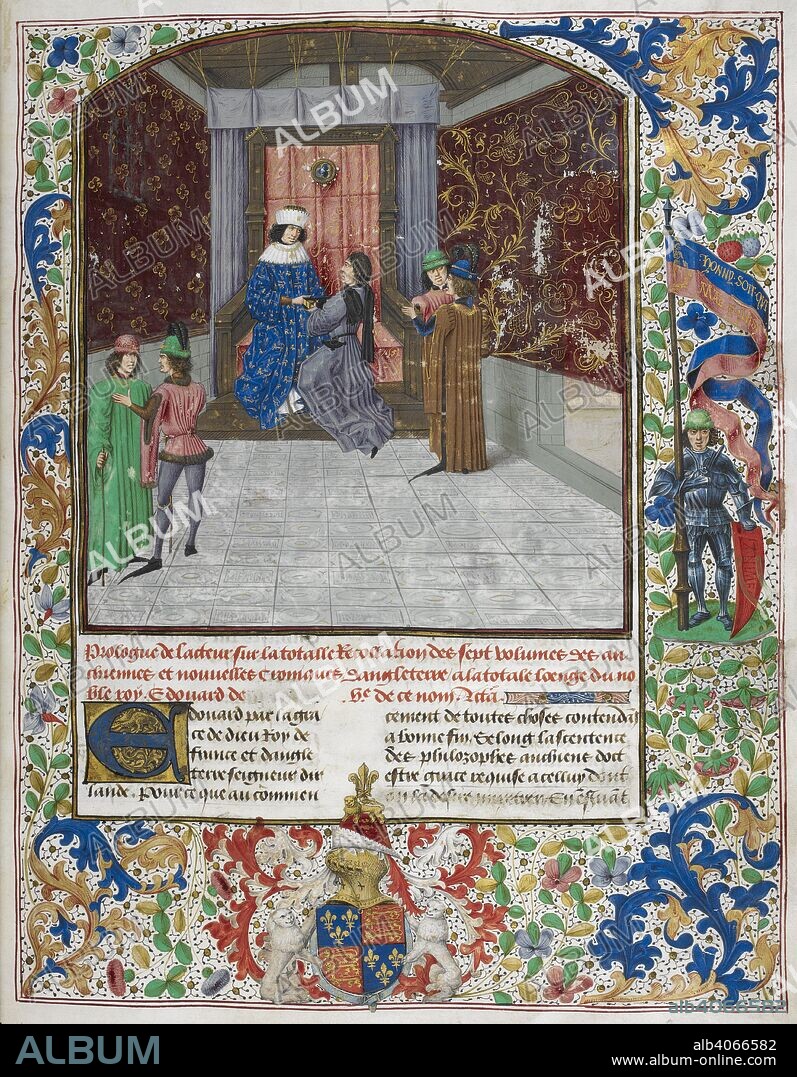 HONNY SOIT QUI
Prologue de lacteur sur la totalle des sept volumes des an
chiennes et nouvelles Cronicques dangleterre a la totale loenge du no
ble roy Edouard de de ce nom. Acta
Edouard par la gra
ce de dieu Roy de
france et dangle
terre seigneur dir
lande. Pour ce que au commen
cement de toutes choses
a bonne fin. Selong la sentence
des philosophes anchiens doit
estre grace requise a celluy dont
ALBUM
alb4066582
www.album-online.com